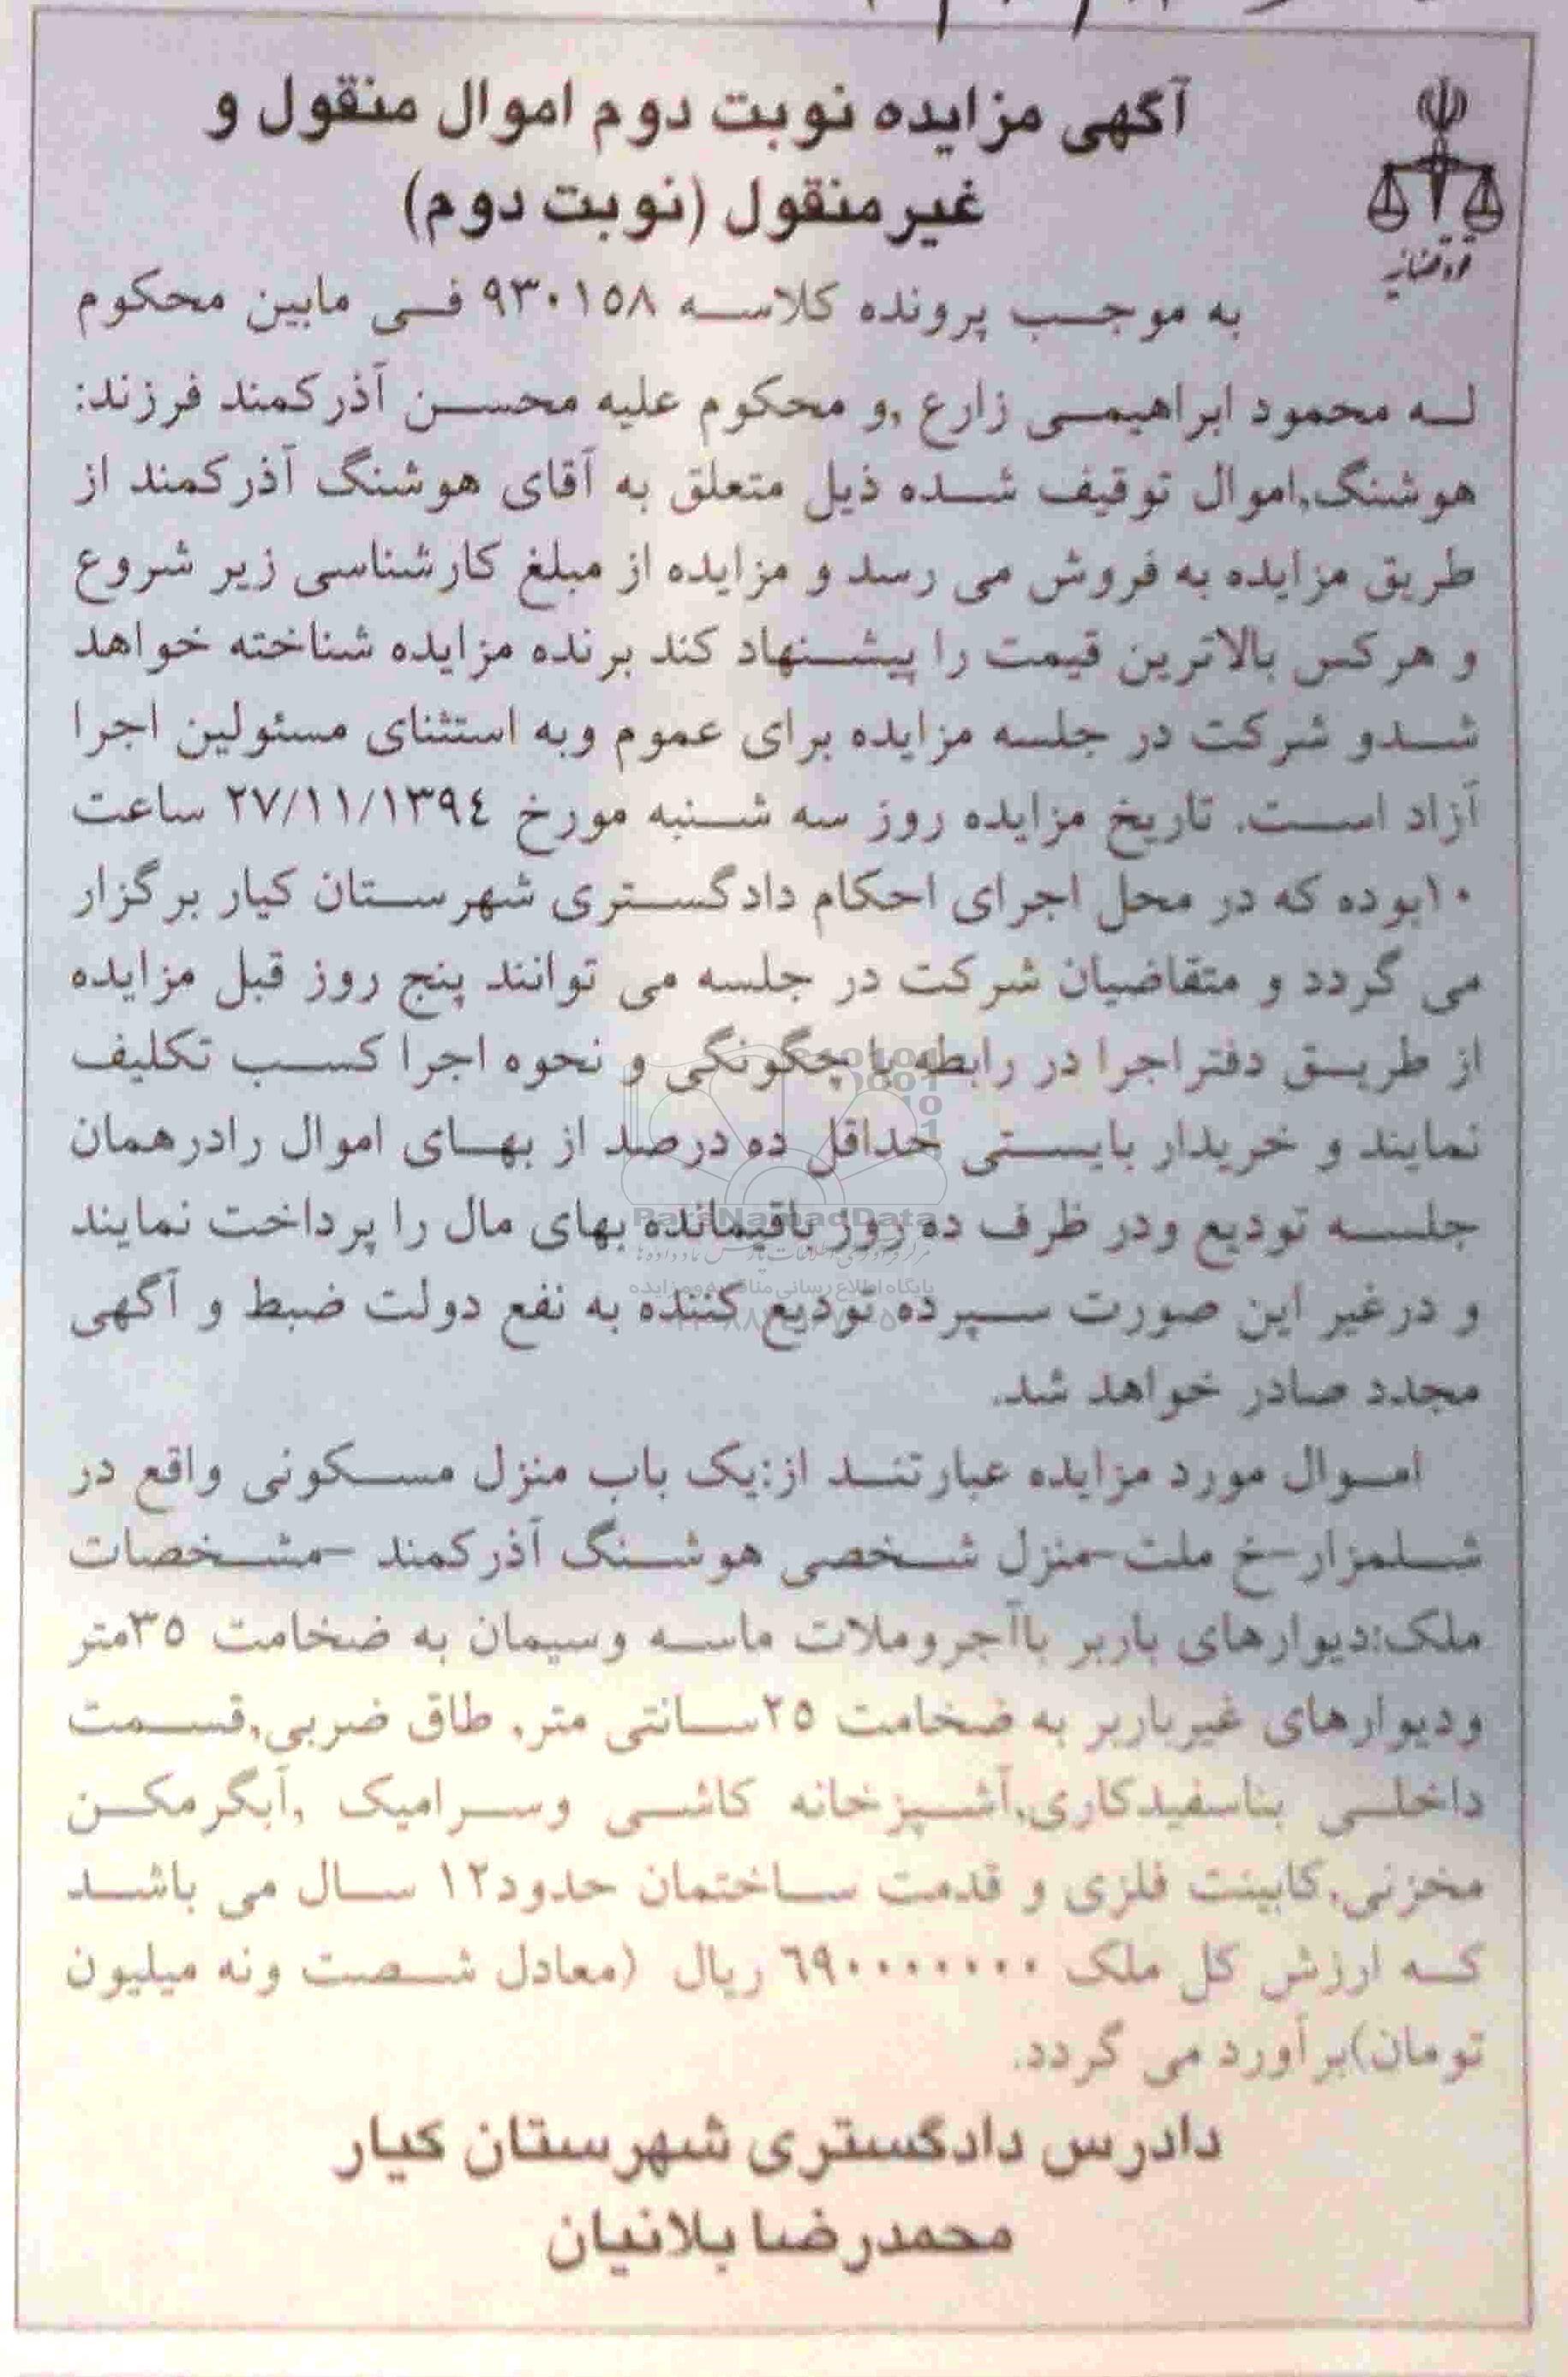 آگهی مزایده نوبت دوم اموال منقول و
غیرمنقول (نوبت دوم)
قوه قضاییه
به موجب پرونده کلاسه ۹۳۰۱۵۸ فی مابین محکوم
له محمود ابراهیمی زارع ,و محکوم علیه محسن آذرکمند فرزند:
هوشنگ,اموال توقیف شده ذیل متعلق به آقای هوشنگ آذرکمند از
طریق مزایده به فروش می رسد و مزایده از مبلغ کارشناسی زیر شروع
و هرکس بالاترین قیمت را پیشنهاد کند برنده مزایده شناخته خواهد
شدو شرکت در جلسه مزایده برای عموم وبه استثنای مسئولین اجرا
آزاد است. تاریخ مزایده روز سه شنبه مورخ ۲۷/۱۱/۱۳۹٤ ساعت
۱۰بوده که در محل اجرای احکام دادگستری شهرستان کیار برگزار
می گردد و متقاضیان شرکت در جلسه می توانند پنج روز قبل مزایده
از طریق دفتراجرا در رابطه با چگونگی و نحوه اجرا کسب تکلیف
نمایند و خریدار بایستی حداقل ده درصد از بهای اموال رادرهمان
جلسه تودیع ودر ظرف ده روز باقیمانده بهای مال را پرداخت نمایند
و درغیر این صورت سپرده تودیع کننده به نفع دولت ضبط و آگهی
مجدد صادر خواهد شد.
اموال مورد مزایده عبارتند از:یک باب منزل مسکونی واقع در
شلمزار-خ ملت-منزل شخصی هوشنگ آذرکمند -مشخصات
ملک:دیوارهای باربر باآجروملات ماسه وسیمان به ضخامت ۳۵متر
ودیوارهای غیرباربر به ضخامت ۲۵سانتی متر, طاق ضربی,قسمت
داخلی بناسفیدکاری,آشپزخانه کاشی وسرامیک ,آبگرمکن
مخزنی,کابینت فلزی و قدمت ساختمان حدود۱۲ سال می باشد
که ارزش کل ملک ٦۹۰۰۰۰۰۰۰۰ ریال (معادل شصت ونه میلیون
تومان)برآورد می گردد.
دادرس دادگستری شهرستان کیار
محمدرضا بلانیان
ParsNamadData
پایگاه اطلاع رسانی مناقصه ومزایده